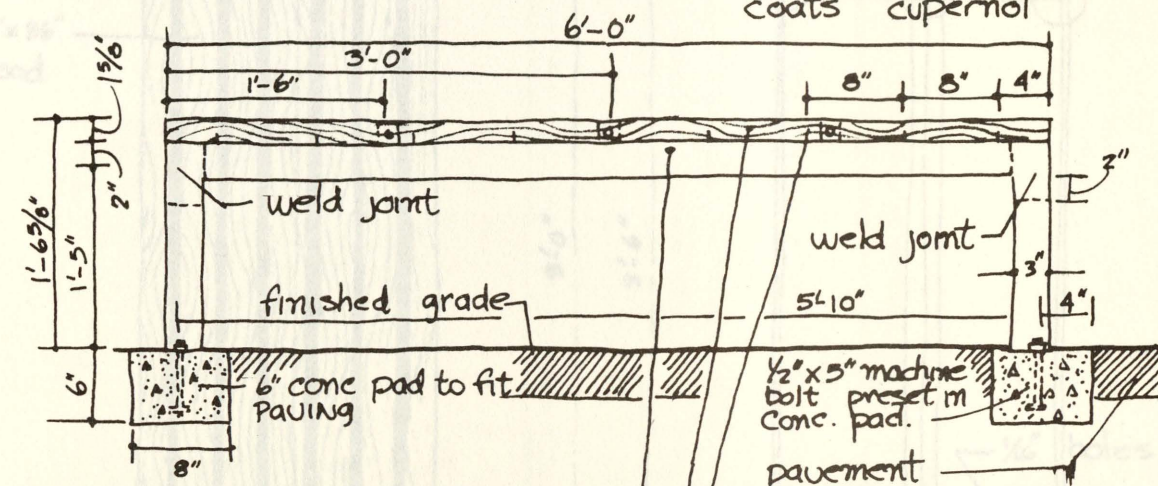 coats cupernol
6'-0"
3'-0"
1'-6"
8"
8"
4"
1 5/8"
2"
2"
weld joint
weld joint
1'-6 5/8"
1'-5"
3"
finished grade
5'-10"
4"
6"
6" conc pad to fit
paving
1/2" x 5" machine
bolt preset in
conc. pad.
8"
pavement